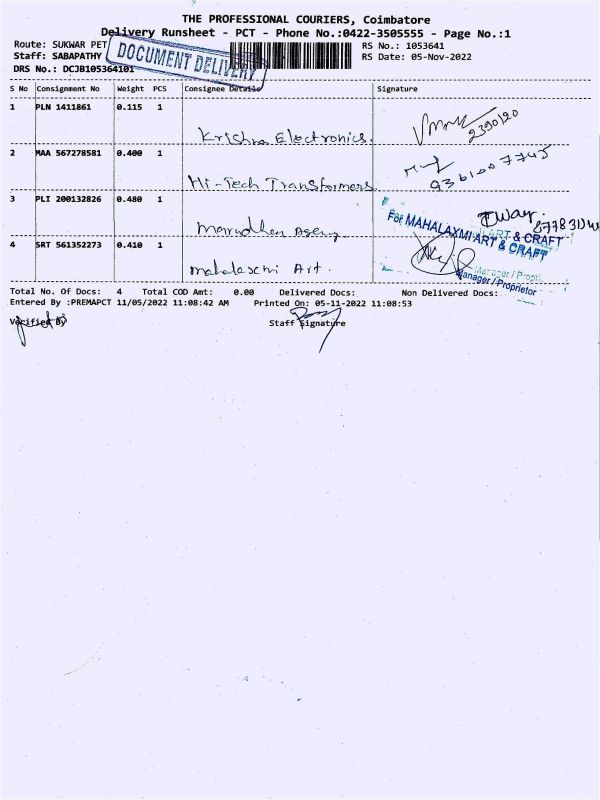 THE PROFESSIONAL COURIERS, Coimbatore
Delivery Runsheet - PCT - Phone No.:0422-3505555 - Page No.:1
Route: SUKWAR PET
RS No.: 1053641
Staff: SABAPATHY
RS Date: 05-Nov-2022
DRS No.: DCJB105364101
DOCUMENT DELIVERY
S No Consignment No Weight PCS Consignee Details Signature
1 PLN 1411861 0.115 1
Krishna Electronics.
2390120
2 MAA 567278581 0.400 1
Hi-Tech Transformers
3 PLI 200132826 0.480 1
For MAHALAXMI ART & CRAFT
ART & CRAFT
4 SRT 561352273 0.410 1
Mahalaxmi Art.
Manager / Proprietor
Total No. Of Docs: 4 Total COD Amt: 0.00 Delivered Docs: Non Delivered Docs:
Entered By :PREMAPCT 11/05/2022 11:08:42 AM Printed On: 05-11-2022 11:08:53
Verified By Staff Signature